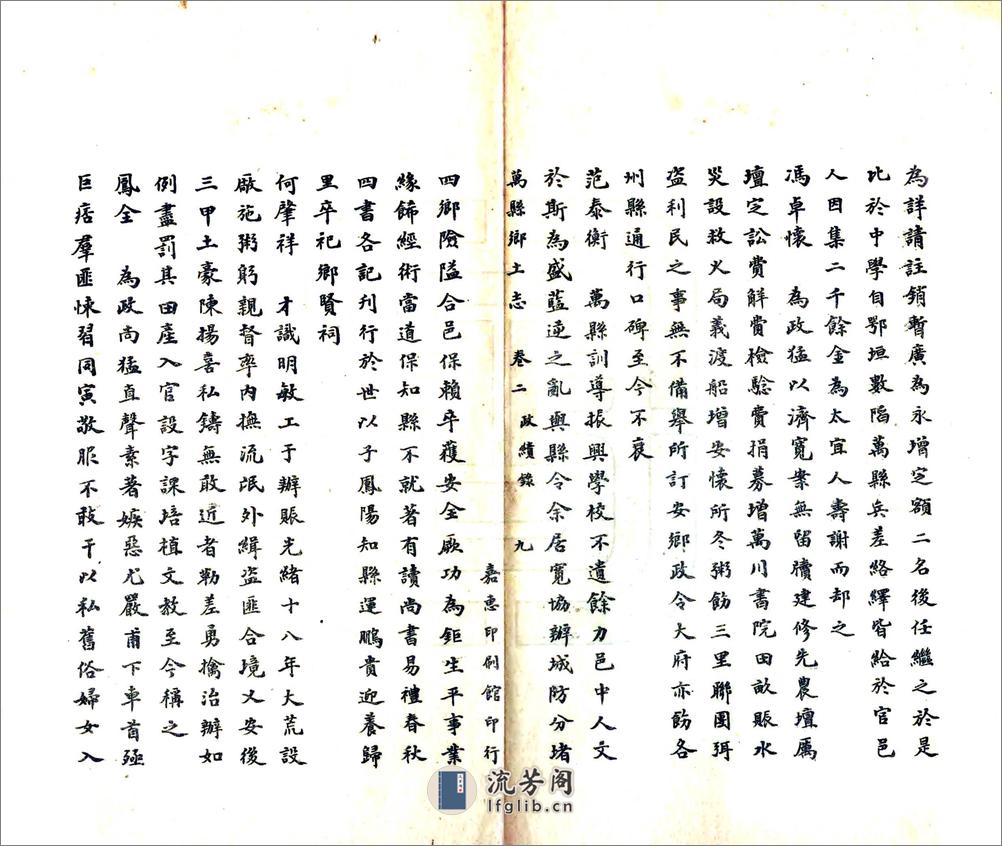 為詳請註銷暫廣為永增定額二名後任繼之於是
比於中學自鄂垣數陷萬縣兵差絡繹皆給於官邑
人因集二千餘金為太宜人壽謝而却之
馮卓懷　為政猛以濟寬案無留牘建修先農壇厲
壇定訟費解費檢騐費捐募增萬川書院田畝賬水
災設救火局義渡船增安懷所冬粥飭三里聯團弭
盗利民之事無不備舉所訂安鄉政令大府亦飭各
州縣通行口碑至今不衰
范泰衡　萬縣訓導振興學校不遺餘力邑中人文
於斯為盛藍逆之亂與縣令余居寬協辦城防分堵
萬縣鄉土志　卷二　政績錄　九　嘉惠印刷館印行
四鄉險隘合邑保賴卒獲安全厥功為鉅生平事業
緣飾經術當道保知縣不就著有讀尚書易禮春秋
四書各記刋行於世以子鳳陽知縣運鵬貴迎養歸
里卒祀鄉賢祠
何肇祥　才識明敏工于辦賬光緒十八年大荒設
厰施粥躬親督率內撫流氓外緝盗匪合境乂安後
三甲土豪陳揚喜私鑄無敢近者勒差勇擒治辦如
例盡罰其田產入官設字課培植文教至今稱之
鳳全　為政尚猛直聲素著嫉惡尤嚴甫下車首殛
巨痞羣匪悚習同寅敬服不敢干以私舊俗婦女入
流芳阁
lfglib.cn